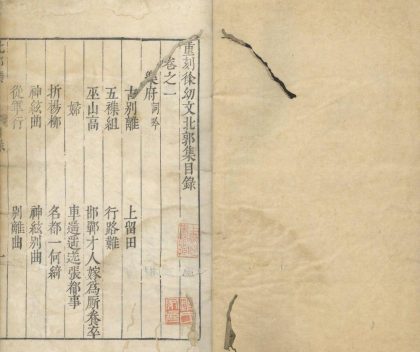 重刻徐幼文北郭集目錄
卷之一
樂府 詞
古別離 上留田
五襍組 行路難
巫山高 邯鄲才人嫁為厮養卒
婦 車遥遥送張都事
折楊柳 名都一何綺
神絃曲 神絃別曲
從軍行 別離曲